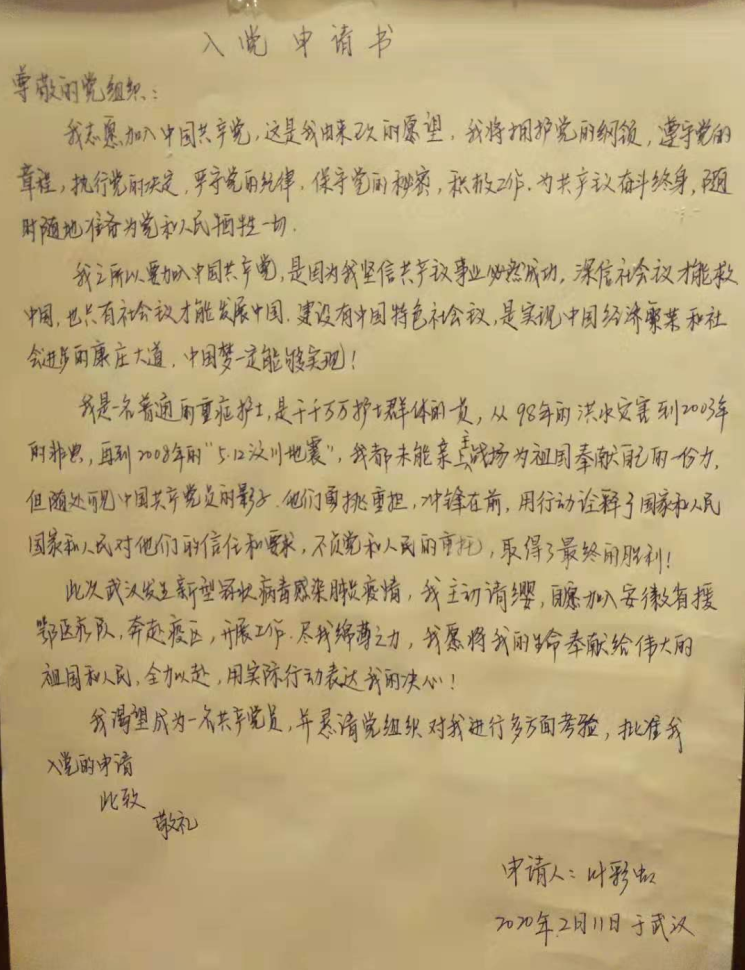 入党申请书
尊敬的党组织：
我志愿加入中国共产党，这是我由来已久的愿望，我将拥护党的纲领，遵守党的
章程，执行党的决定，严守党的纪律，保守党的秘密，积极工作，为共产主义奋斗终身，随
时随地准备为党和人民牺牲一切.
我之所以要加入中国共产党，是因为我坚信共产主义事业必然成功，深信社会主义才能救
中国，也只有社会主义才能发展中国.建设有中国特色社会主义，是实现中国经济繁荣和社
会进步的康庄大道，中国梦一定能够实现！
我是一名普通的重症护士，是千千万万护士群体的一员，从98年的洪水灾害到2003年
的非典，再到2008年的“5.12汶川地震”，我都未能亲上主战场为祖国奉献自己的一份力，
但随处可见中国共产党员的影子.他们勇挑重担，冲锋在前，用行动诠释了国家和人民
国家和人民对他们的信任和要求，不负党和人民的重托，取得了最终的胜利！
此次武汉发生新型冠状病毒感染肺炎疫情，我主动请缨，自愿加入安徽省援
鄂医疗队，奔赴疫区，开展工作.尽我绵薄之力，我愿将我的生命奉献给伟大的
祖国和人民，全力以赴，用实际行动表达我的决心！
我渴望成为一名共产党员，并恳请党组织对我进行多方面考验，批准我
入党的申请
此致
敬礼
申请人：叶彩虹
2020年2月11日于武汉